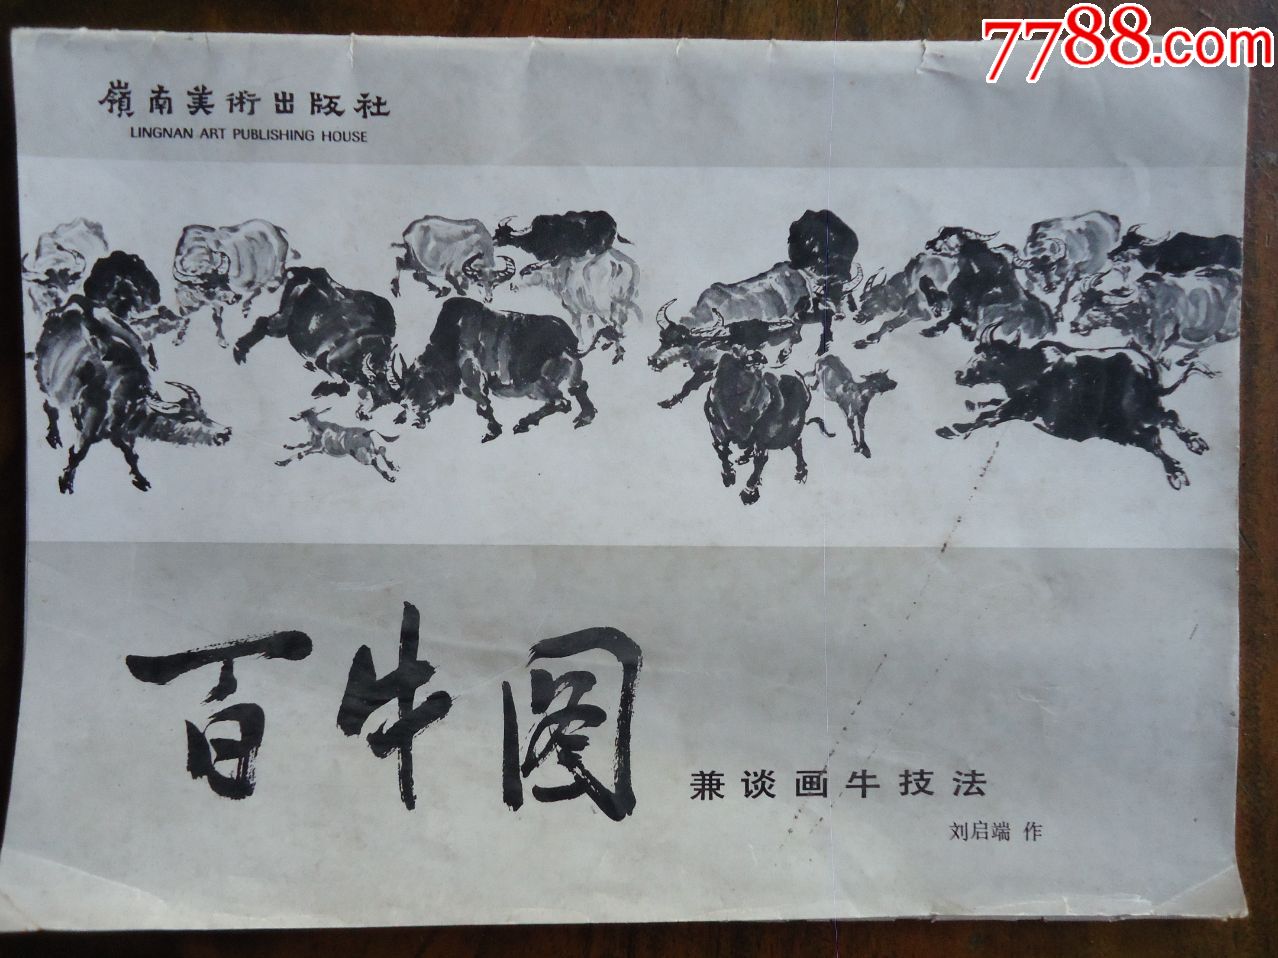 7788.com
嶺南美術出版社
LINGNAN ART PUBLISHING HOUSE
百牛图
兼谈画牛技法
刘启端 作